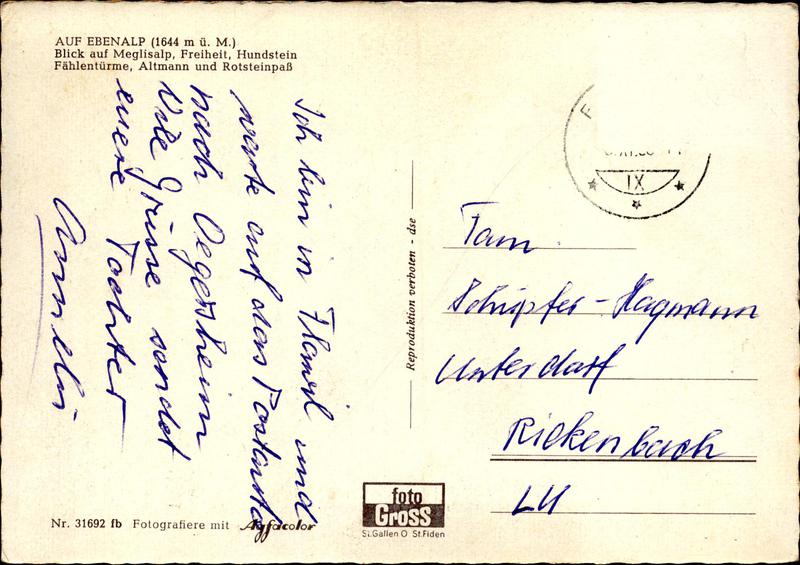 AUF EBENALP (1644 m ü. M.)
Blick auf Meglisalp, Freiheit, Hundstein
Fählentürme, Altmann und Rotsteinpaß
Ich bin in Flawil und
warte auf das Postauto
nach Degersheim
Viele Grüsse sendet
euere Tochter
Reproduktion verboten - dse
IX
Fam
Schüpfer-Hagmann
Unterdorf
Rickenbach
LU
Nr. 31692 fb Fotografiere mit Agfacolor
foto
Gross
St.Gallen O St.Fiden